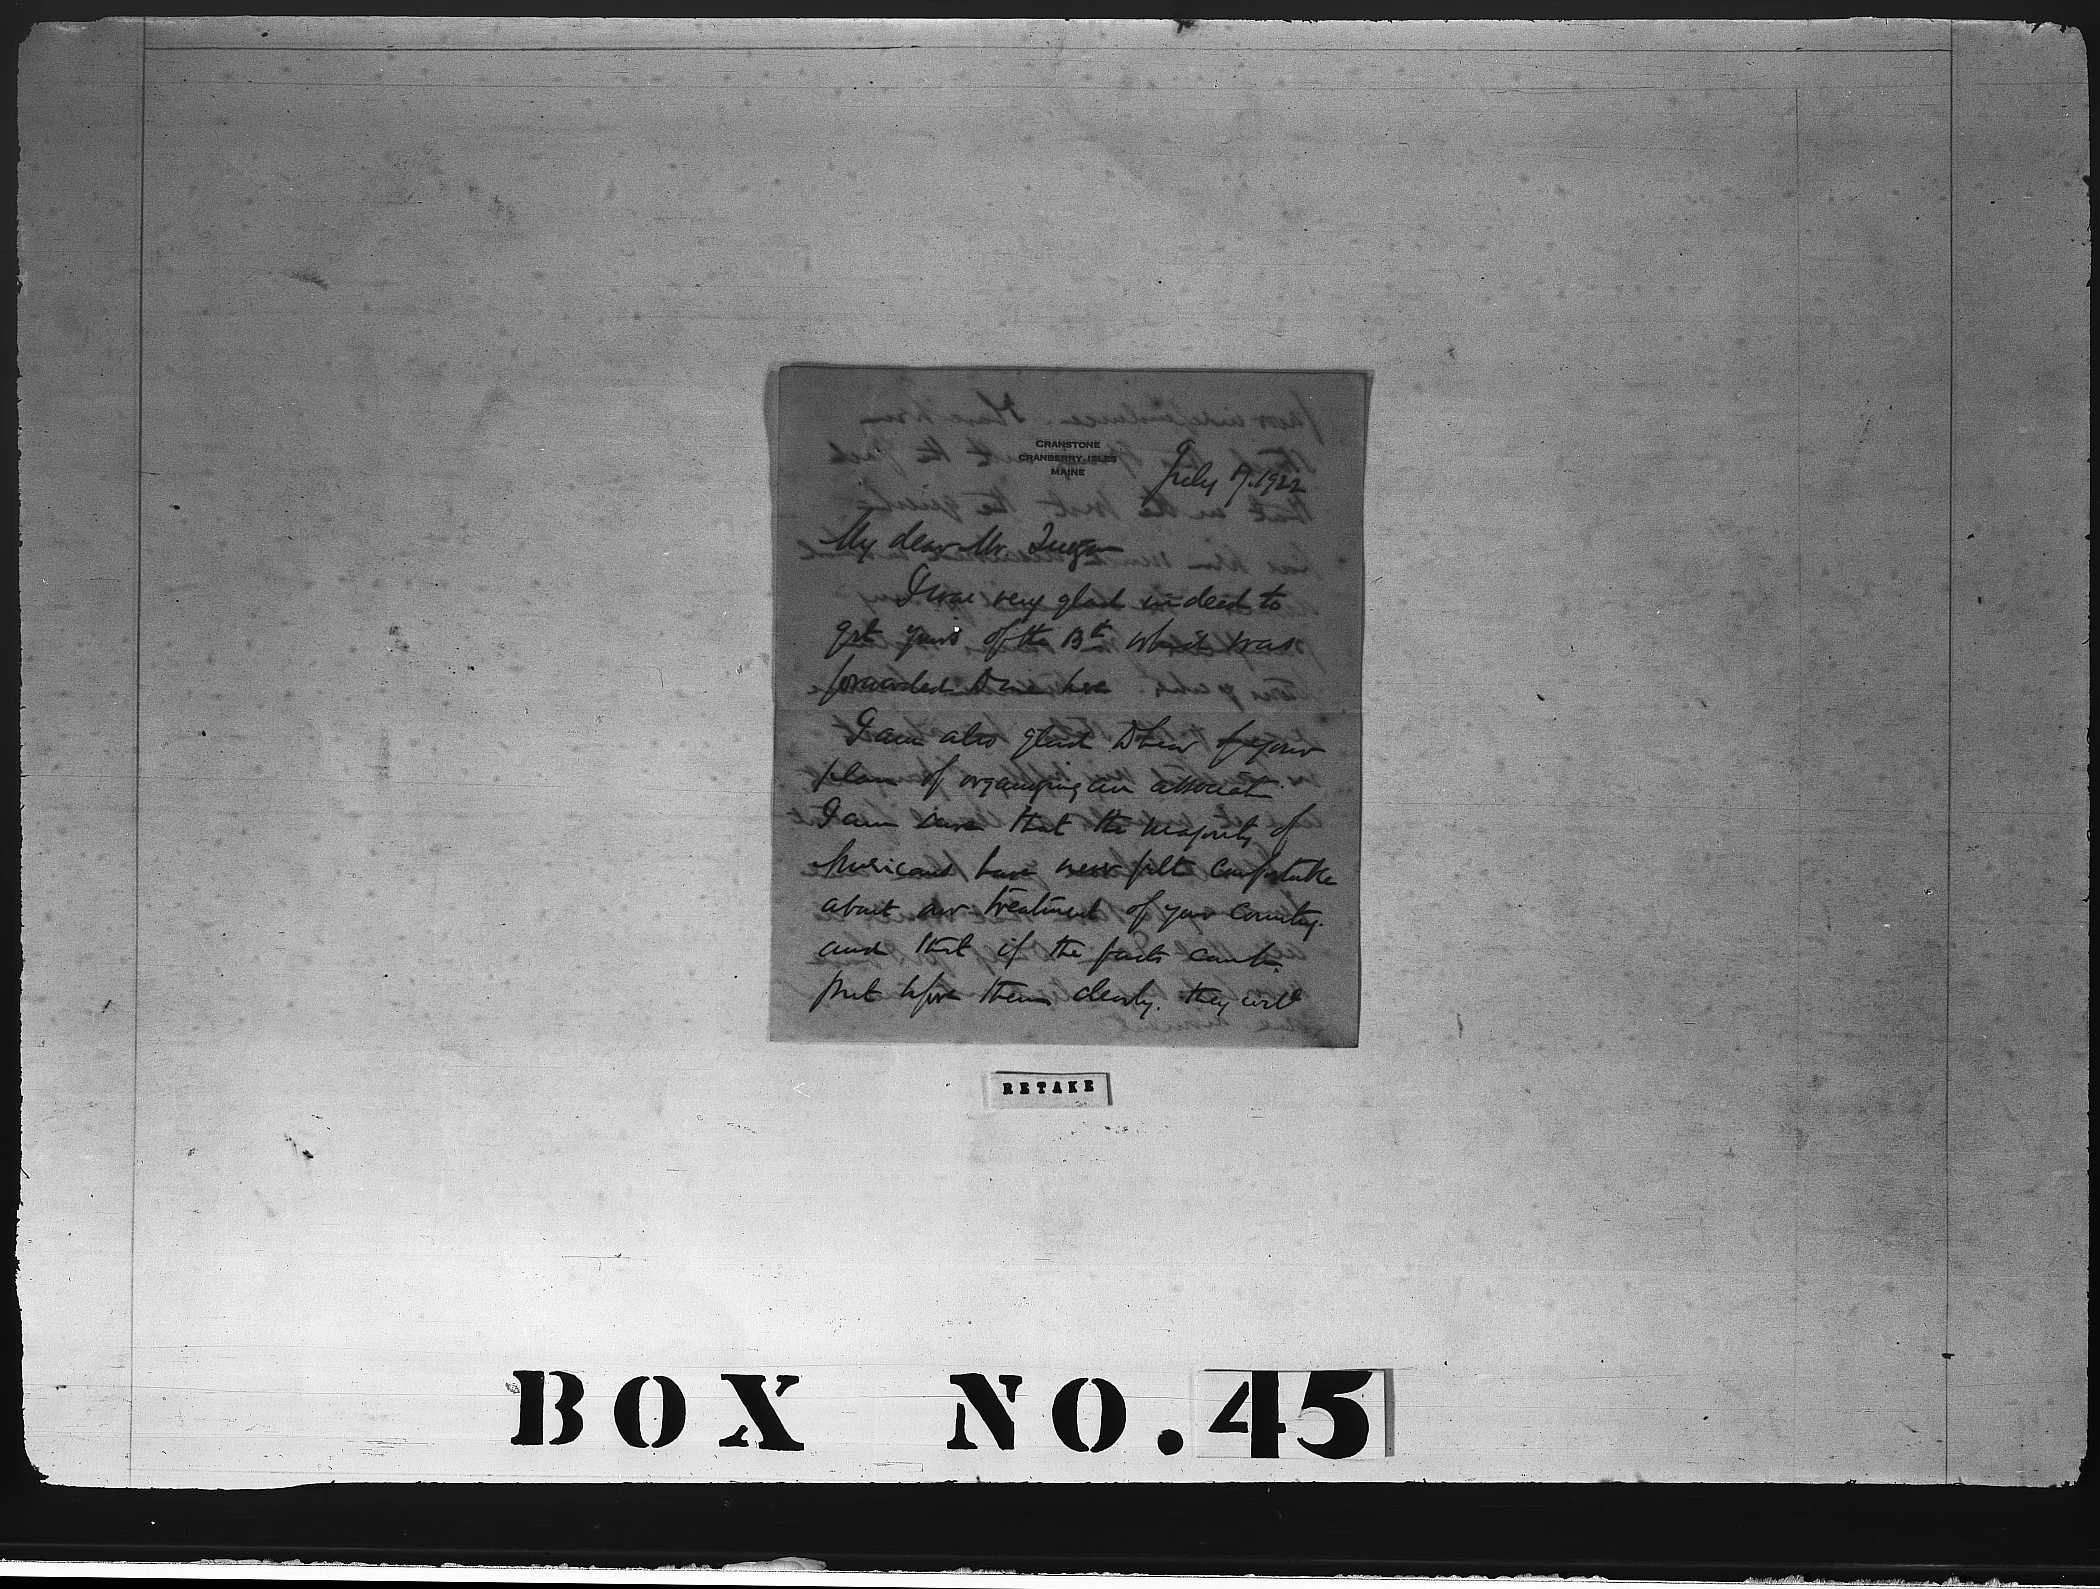 CRANSTONE
CRANBERRY ISLES
MAINE
July 7. 1922
My dear Mr. Quezon
I was very glad indeed to
get yours of the 13th which was
forwarded to me here
I am also glad to hear of your
plan of organizing an associat.
I am sure that the majority of
Americans have never felt comfortable
about our treatment of your country.
and that if the facts can be
put before them clearly. they will
RETAKE
BOX NO. 45